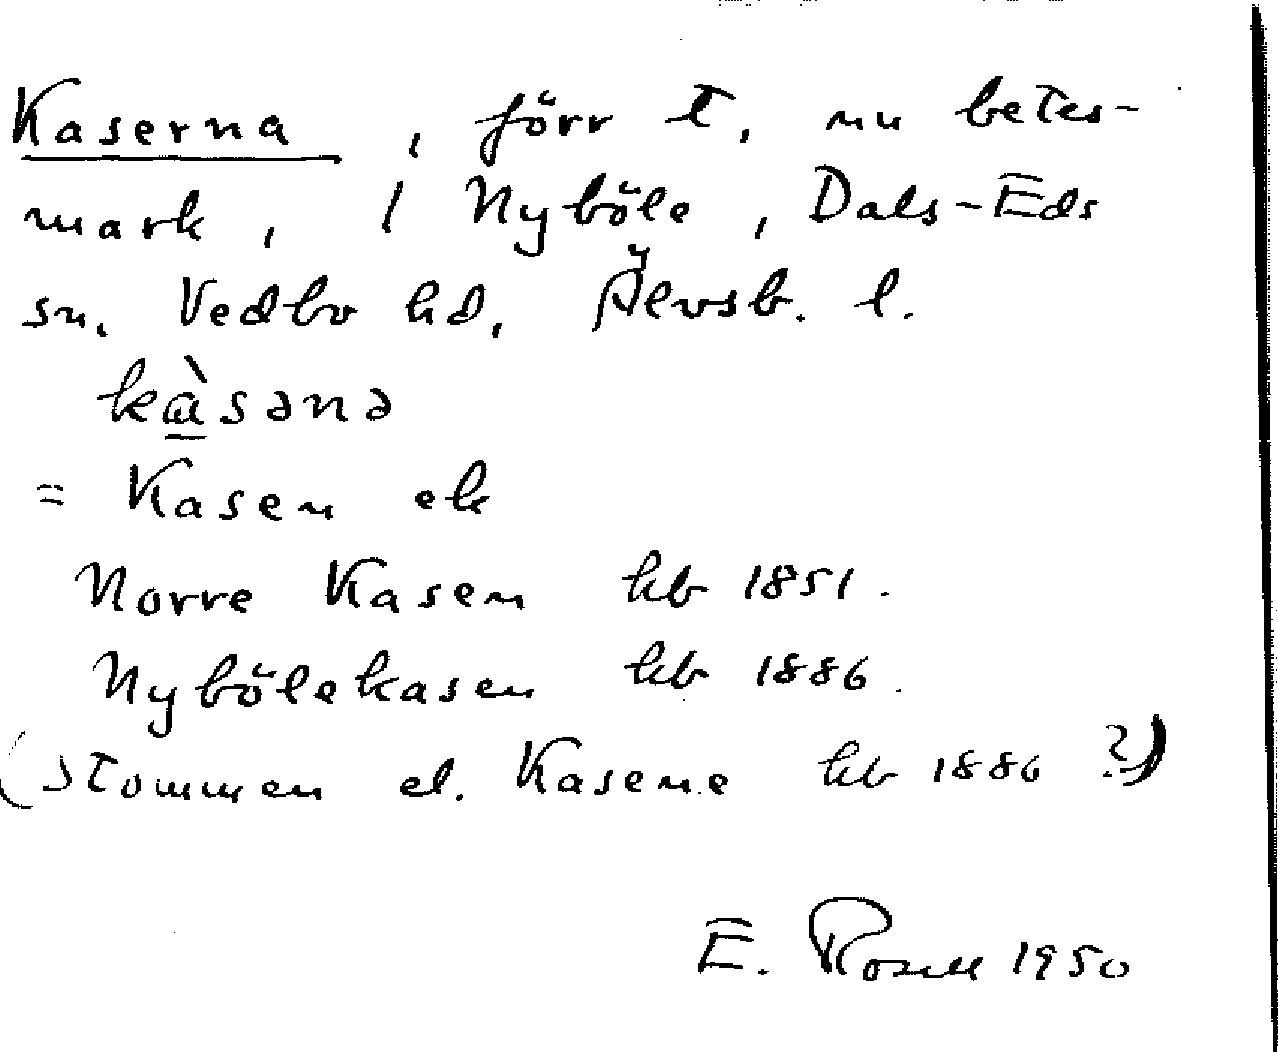 Kaserna, förr t, nu betes-
mark, / Nyböle, Dals-Eds
sn. Vedbo hd, Älvsb. l.
kàsənə
= Kasen ek
Norre Kasen hb 1851.
Nybölekasen hb 1886.
(Stommen el. Kasene hb 1886 ?)
E. Rosell 1950